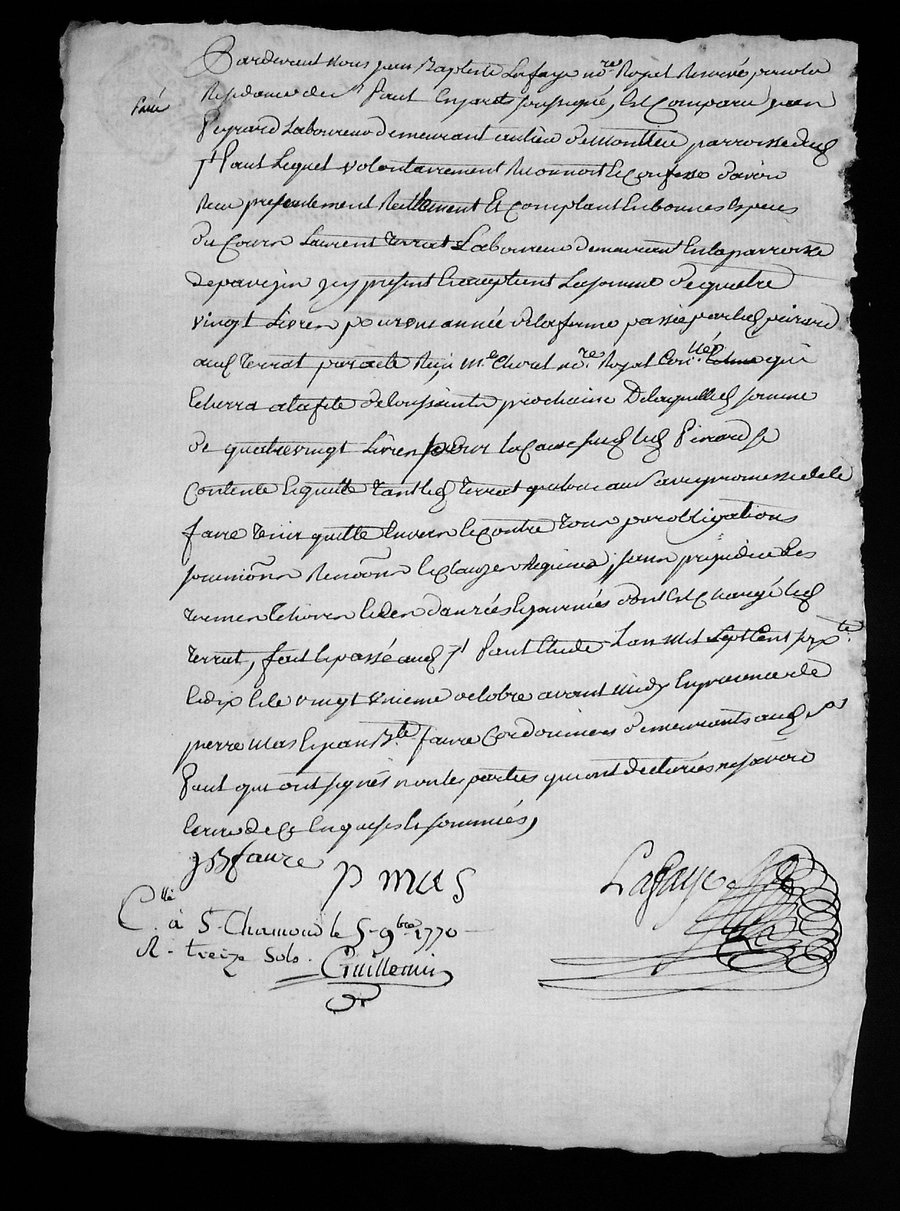 Pardevant Nous jean Baptiste Lafaye no.re Royal Reservé pour la
Paué
Residance de St Paul En jarets soussigné, Est Comparu jean
Peyrard Laboureur demeurant au lieu de Montlieu parroisse dud
St Paul Lequel volontairement Reconnoit & confesse d'avoir
Reçu presentement Reellement Et Comptant En bonnes Espèces
du Cours Laurent Terrat Laboureur demeurant En la parroisse
de pavezin icy present & acceptant La somme de quatre
vingt Livres pour une année de la ferme passée par led peirard
aud Terrat par acte Reçu Me no.re Royal qui
Echerra a la fete de toussaints prochaine De laquelle somme
de quatre vingt Livres pour la cause sud led Peirard se
Contente & quitte tant led Terrat que tous autres avec promesse de le
faire tenir quitte Envers & contre tous par obligations
soumions Renons & clauzes Requises, sans prejudice des
termes Echoir & des danrées & journées dont Est Chargé led
Terrat, fait & passé aud St Paul Etude L'an Mil Sept Cent soix.te
& dix & le vingt unieme octobre avant midy En presence de
pierre Mas & jean B.te faure Cordonniers demeurants aud St
Paul qui ont signés non les parties qui ont declarées ne savoir
Ecrire de ce Enquises & sommées,
JB faure
P mas
Lafaye
C.llé à St. Chamond le 5. 9bre 1770
R. treize sols.
Guillemin